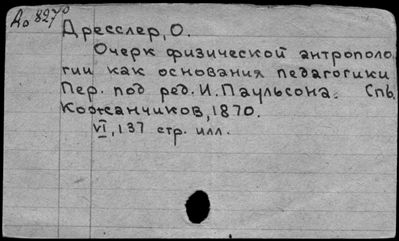 До 8270
Дресслер, О.
Очерк физической антрополо-
гии как основания педагогики
Пер. под ред. И. Паульсона. Спб.
Кожанчиков, 1870.
VI, 137 стр. илл.